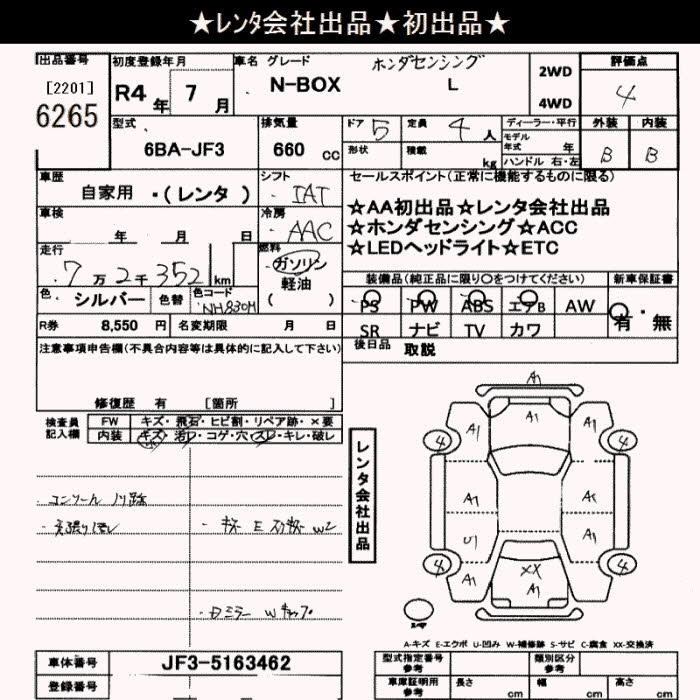 ★レンタ会社出品★初出品★
出品番号 初度登録年月 車名 グレード ホンダセンシング 評価点
[2201] R4年 7月 N-BOX L 2WD 4
6265 4WD
型式 排気量 ドア 5 定員 4人 ディーラー・平行 外装 内装
6BA-JF3 660 cc 形状 積載 kg モデル年式 年 B B
ハンドル 右・左
車歴 シフト セールスポイント(正常に機能するものに限る)
自家用 ・(レンタ) IAT ☆AA初出品☆レンタ会社出品
車検 年 月 日 冷房 AAC ☆ホンダセンシング☆ACC
走行 燃料 ☆LEDヘッドライト☆ETC
7万2千352km ガソリン
軽油
( )
装備品(純正品に限り○をつけてください) 新車保証書
色 シルバー 色替 色コード NH830M PS PW ABS エアB AW 有・無
R券 8,550 円 名変期限 月 日 SR ナビ TV カワ
注意事項申告欄(不具合内容等は具体的に記入して下さい) 後日品 取説
修復歴 有 [箇所 ]
検査員記入欄 FW キズ・飛石・ヒビ割・リペア跡・×要
内装 キズ・汚レ・コゲ・穴・スレ・キレ・破レ
レンタ会社出品
A1
A1 A1 A1
4 4
A1
A1
U1 A1
4 XX 4
A1 A1 A1
コンソール ノリ跡
スペア
A-キズ E-エクボ U-凹み W-補修跡 S-サビ C-腐食 XX-交換済
車体番号 JF3-5163462 型式指定番号 参考 類別区分 参考
登録番号 車庫証明用 参考 長さ cm 幅 cm 高さ cm